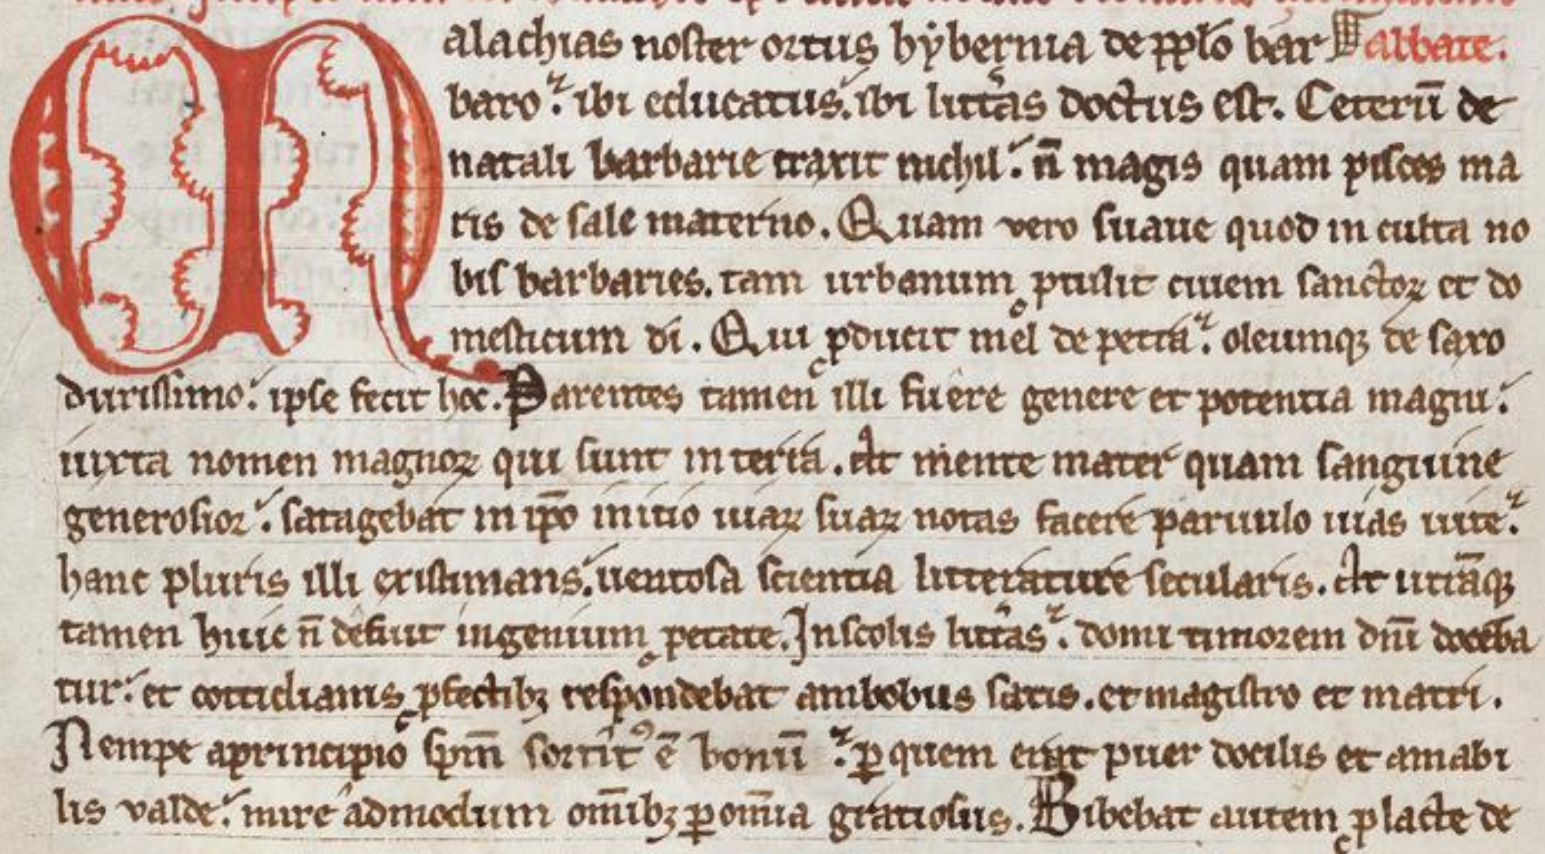 Malachias noster ortus hybernia de pp̄lo bar abbate.
baro. ibi educatus. ibi litt̄as doctus est. Ceterū de
natali barbarie traxit nichil. n̄ magis quam pisces ma
ris de sale materno. Quam vero suaue quod in culta no
bis barbaries. tam urbanum ꝓtulit ciuem sanctoꝝ et do
mesticum di. Qui ꝓducit mel de petra. oleumqꝫ de saxo
durissimo. ipse fecit hoc. Parentes tamen illi fuere genere et potentia magni.
iuxta nomen magnoꝝ qui sunt in terra. At mente mater quam sanguine
generosior. satagebat in ip̄o initio uiaꝝ suaꝝ notas facere paruulo uias uite.
hanc pluris illi existimans. uentosa scientia litterature secularis. At utrāqꝫ
tamen huic n̄ defuit ingenium ꝓ etate. In scolis litt̄as. domi timorem dn̄i doceba
tur. et cottidianis ꝓfectibꝫ respondebat ambobus satis. et magistro et matri.
Nempe a principio sp̄m sortitꝰ ē bonū. ꝑ quem erat puer docilis et amabi
lis valde. mire admodum om̄ibꝫ ꝑ om̄ia gratiosus. Bibebat autem ꝓ lacte de